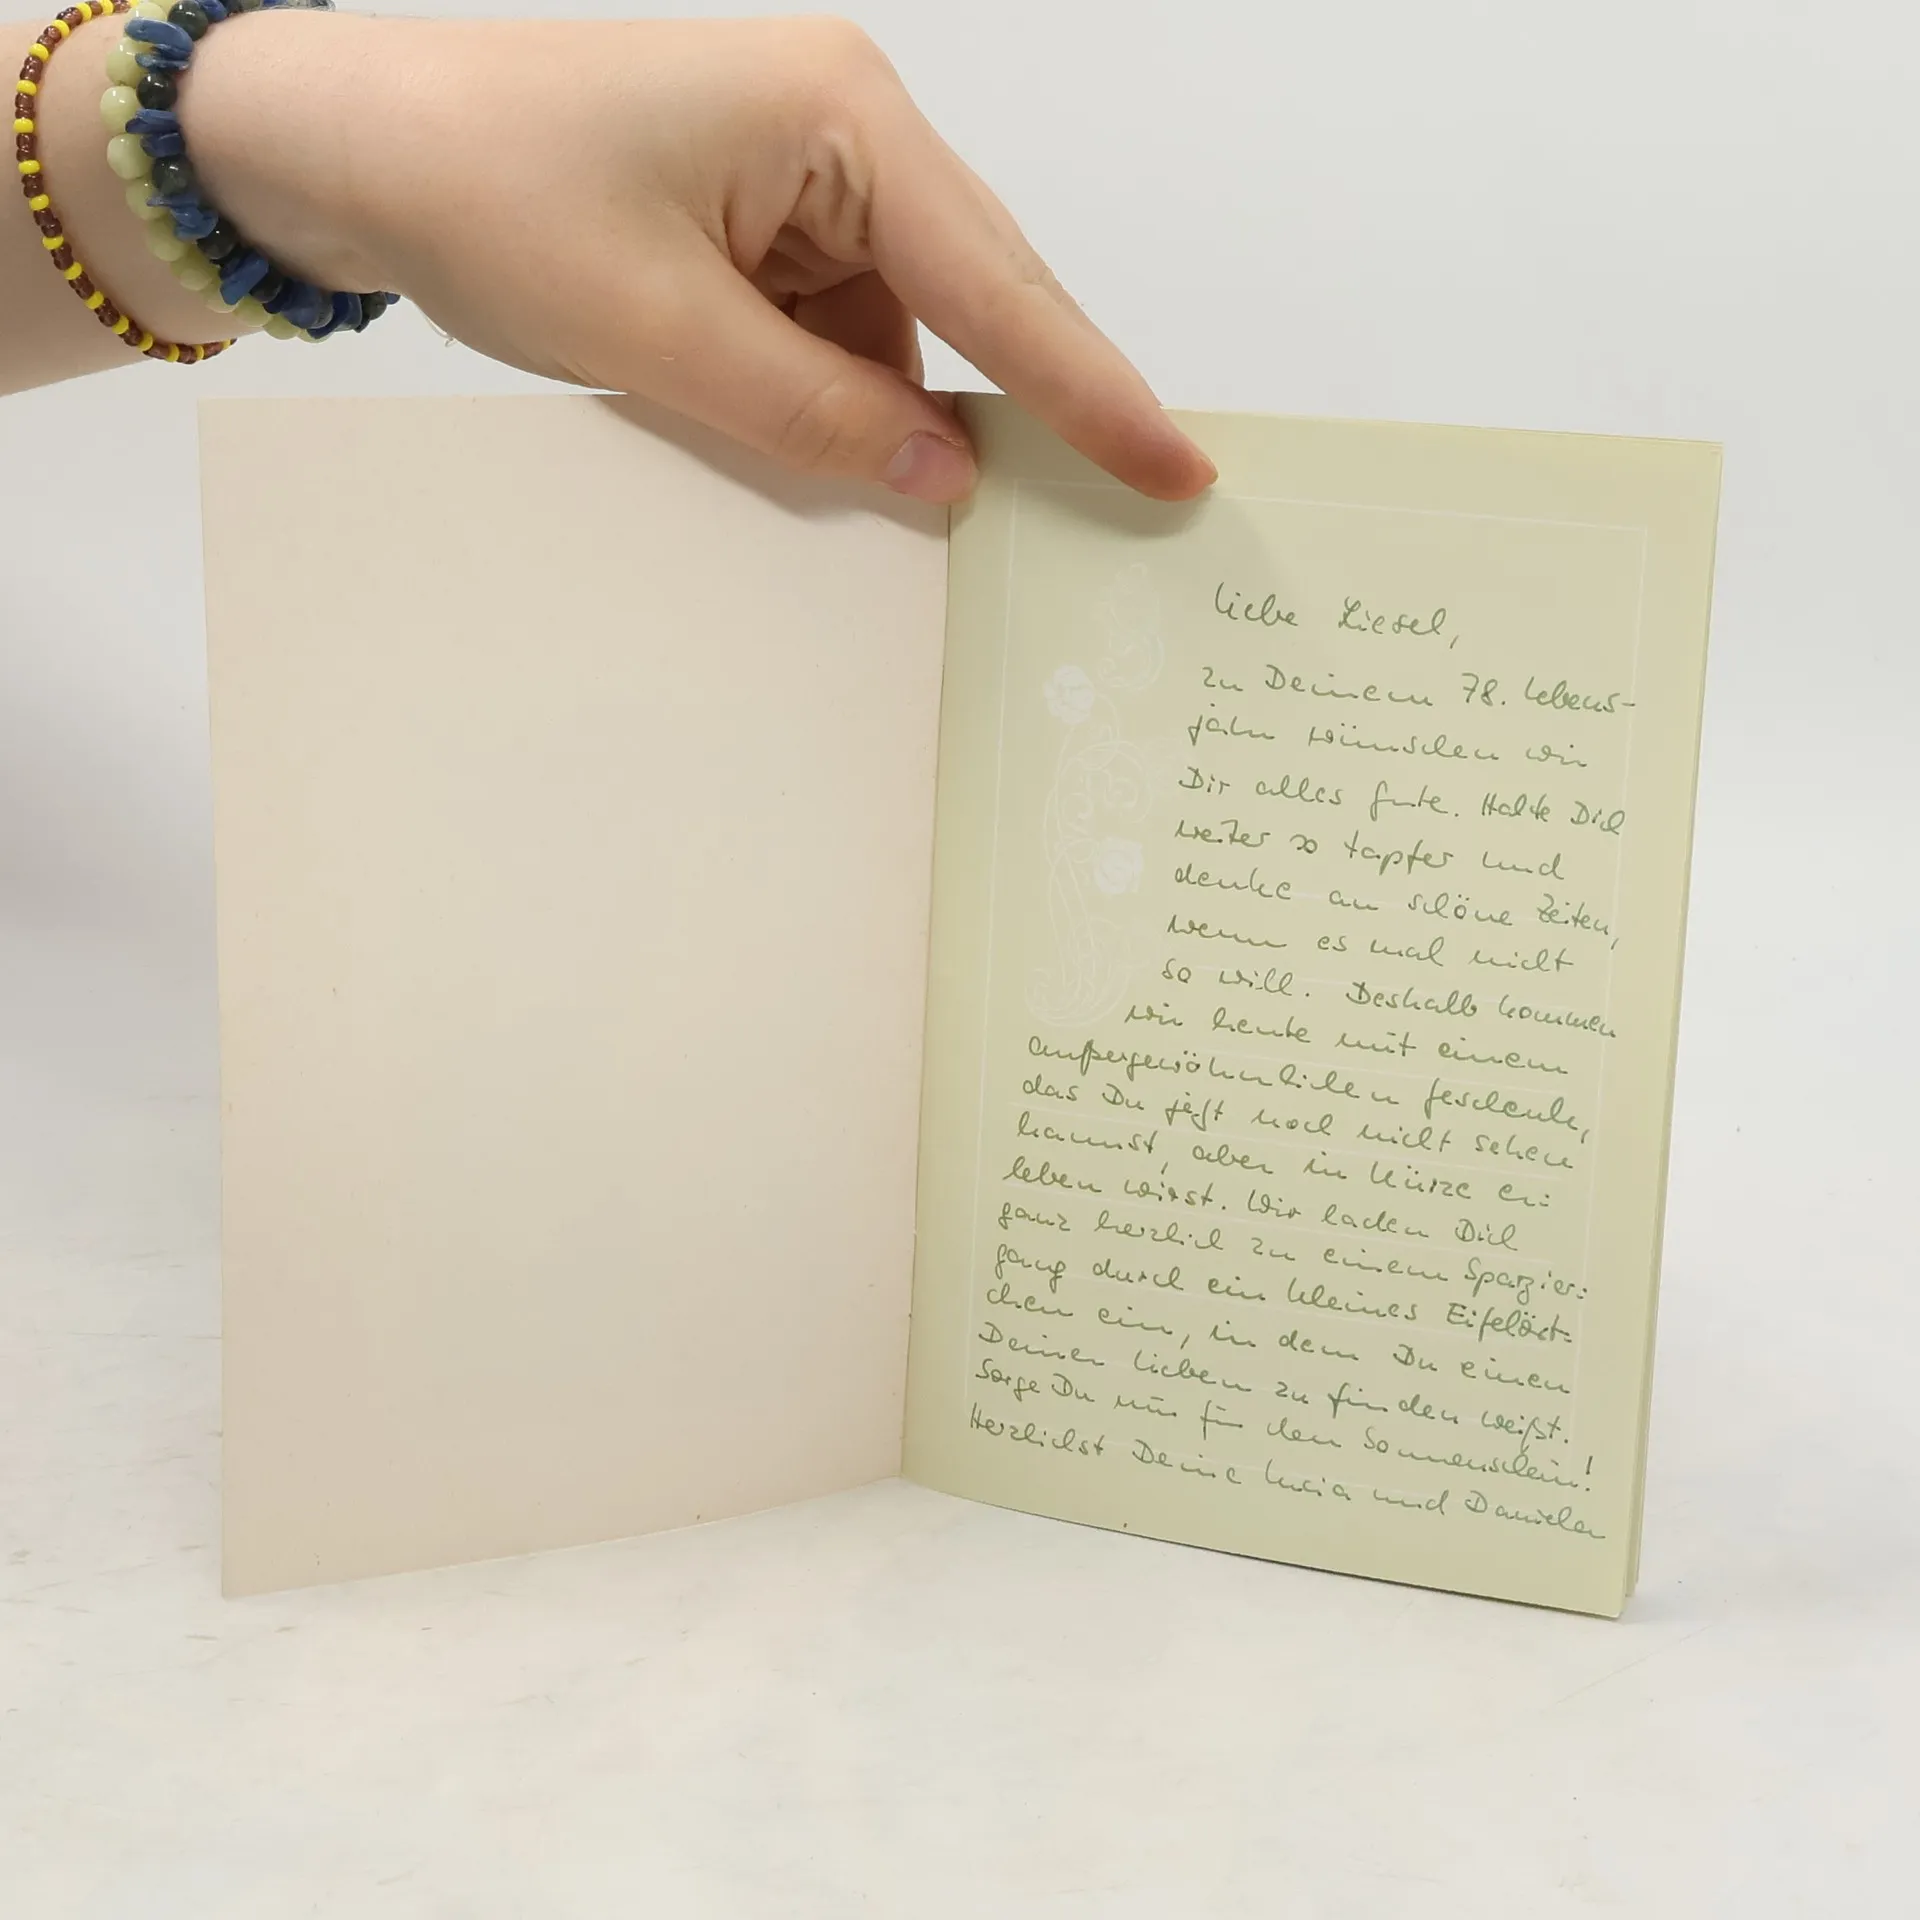 Liebe Liesel,
zu Deinem 78. Lebens-
jahr wünschen wir
Dir alles Gute. Halte Dich
weiter so tapfer und
denke an schöne Zeiten,
wenn es mal nicht
so will. Deshalb kommen
wir heute mit einem
außergewöhnlichen Geschenk,
das Du jetzt noch nicht sehen
kannst, aber in Kürze er:
leben wirst. Wir laden Dich
ganz herzlich zu einem Spazier:
gang durch ein kleines Eifelört:
chen ein, in dem Du einen
Deiner Lieben zu finden weißt.
Sorge Du nur für den Sonnenschein!
Herzlichst Deine Lucia und Daniela